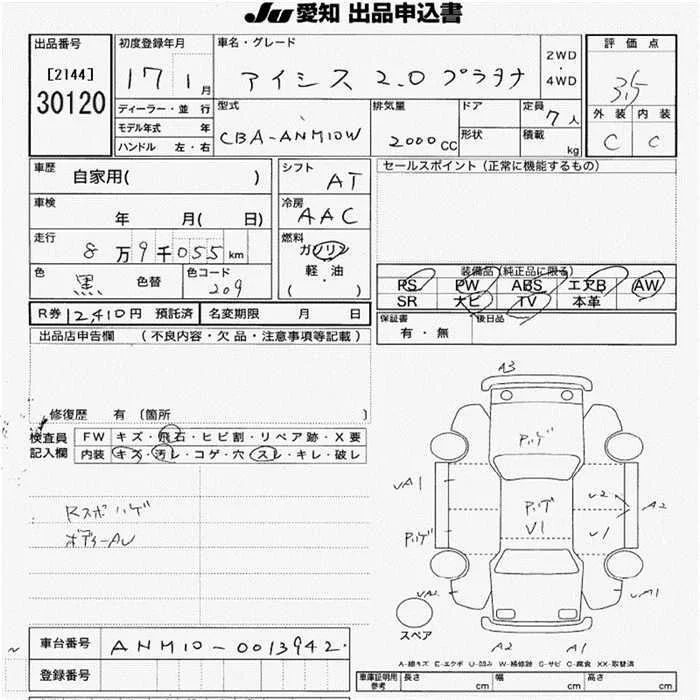 JU 愛知 出品申込書
出品番号
[2144]
30120
初度登録年月
17 1 月
ディーラー・並 行
モデル年式 年
ハンドル 左・右
車名・グレード
アイシス 2.0 プラタナ
2WD
・
4WD
型式
CBA-ANM10W
排気量
2000 CC
ドア
形状
定員
7 人
積載
kg
評 価 点
3.5
外 装 内 装
C C
車歴
自家用( )
車検
年 月( 日)
走行
8 万 9 千 055 km
色
黒
色替
色コード
209
シフト
AT
冷房
AAC
燃料
ガソリン
軽・油
( ・ )
セールスポイント (正常に機能するもの)
装備品 (純正品に限る)
PS PW ABS エアB AW
SR ナビ TV 本革
保証書
有・無
後日品
R券 12,410円 預託済
名変期限 月 日
出品店申告欄 (不良内容・欠品・注意事項等記載)
修復歴 有 〔箇所 〕
検査員
記入欄
FW キズ・飛石・ヒビ割・リペア跡・X要
内装 キズ・汚レ・コゲ・穴・スレ・キレ・破レ
Rスポハゲ
ボディーAU
A3
Pハゲ
UA1
Pハゲ
V1
U2
A2
U1
Pハゲ
UA2
UA1
スペア
A2 A1
A-線キズ E-エクボ U-凹み W-補修跡 S-サビ C-腐食 XX-取替済
車台番号
ANM10-0013942
登録番号
車庫証明用
参考
長さ cm
幅 cm
高さ cm